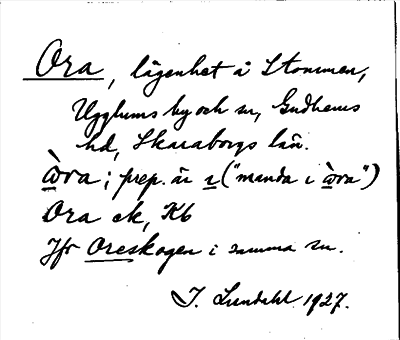 Ora, lägenhet å Stommen,
Ugglums by och sn, Gudhems
hd, Skaraborgs län.
åra; prep. är i ("manda i åra")
Ora ek, Kb
Jfr Oreskogen i samma sn.
I. Lundahl 1927.